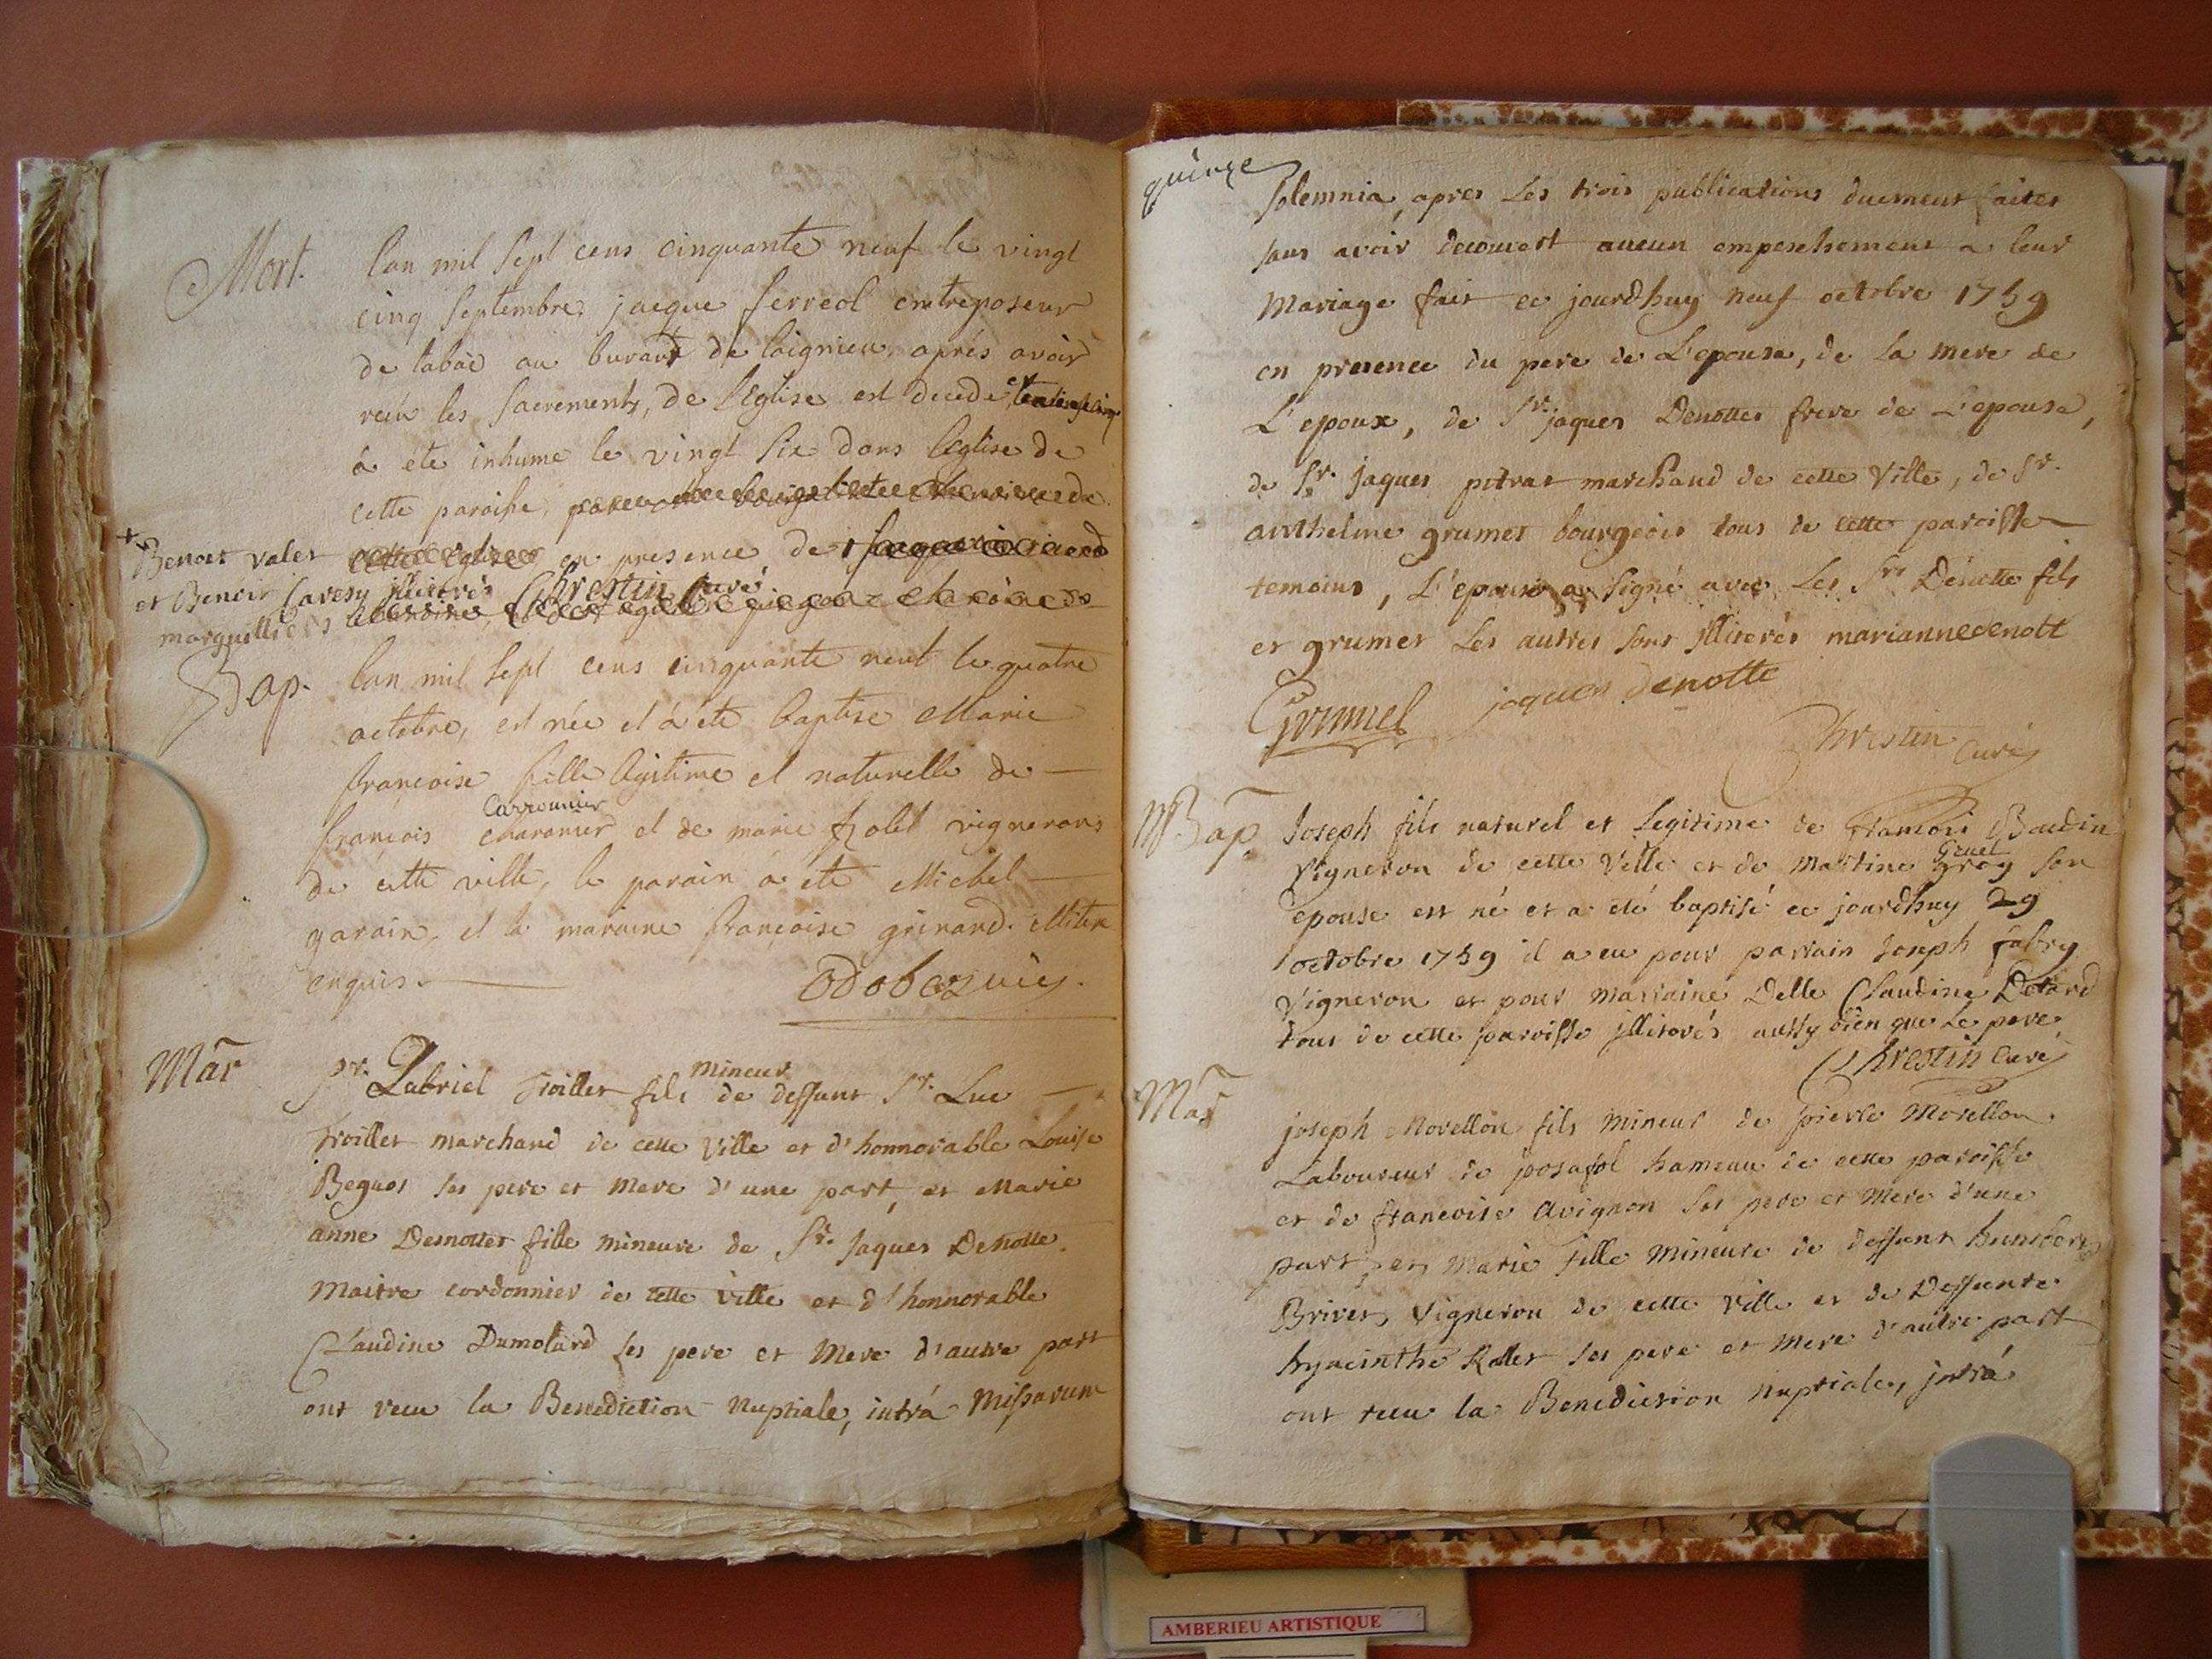 Mort. lan mil sept cens cinquante neuf le vingt
cinq septembre, jacque ferreol entreposeur
de tabac au buraut de laignieu, après avoir
recù les sacrements, de l'Eglise est decedé et
à eté inhume le vingt six dans leglise de
cette paroisse,
en presence de
+ Benoit valet
et Benoit Caresy illiterés
marguilliers
Chrestin Curé
Bap. lan mil sept cens cinquante neuf le quatre
octobre, est née et à été baptise Marie
françoise fille legitime et naturelle de —
Carronnier
françois charonier et de marie vignerons
de cette ville, le parain à été Michel —
garain, et la maraine françoise grinand. illitere
enquis. — Odobez vic.
Mar
mineur
Sr. Gabriel Troillet fils de deffunt Sr. Luc —
Troillet marchand de cette Ville et d'honnorable Louise
Beguet ses pere et mere d'une part, et Marie
anne Denottes fille mineure de Sr. Jaques Denotte
Maitre cordonnier de cette ville et d'honnorable
Claudine Dumolard ses pere et mere d'autre part
ont receu la Benediction nuptiale, intrá Missarum
quinze
solemnia, apres les trois publications duement faites
sans avoir decouvert aucun empeschement a leur
Mariage fait ce jourdhuy neuf octobre 1759
en presence du pere de L'epouse, de la mere de
L'epoux, de Sr. jaques Denottes frere de L'epouse,
de Sr. jaques pitrat marchand de cette Ville, de Sr.
anthelme grumet bourgeois tous de cette paroisse
temoins, L'epouse a signé avec Les Srs Denotte fils
et grumet Les autres sont illiterés mariannedenott
Grumel jaques denotte
Chrestin Curé
Bap. Joseph fils naturel et legitime de francois Baudin
Genet
Vigneron de cette Ville et de Martine groy son
epouse est né et a eté baptisé ce jourdhuy 29
octobre 1759 il a eu pour parrain Joseph fabry
Vigneron et pour marraine Delle Claudine Detard
tous de cette paroisse illiterés aussy bien que Le pere
Chrestin Curé
Mar
joseph Morellon fils mineur de pierre Morellon
Laboureur de posafol hameau de cette paroisse
et de francoise Avignon ses pere et mere d'une
part, et Marie fille mineure de deffunt humbert
Brivet Vigneron de cette Ville et de Deffunte
hyacinthe Rollet ses pere et mere d'autre part
ont receu la Benediction nuptiale, intrá
AMBERIEU ARTISTIQUE